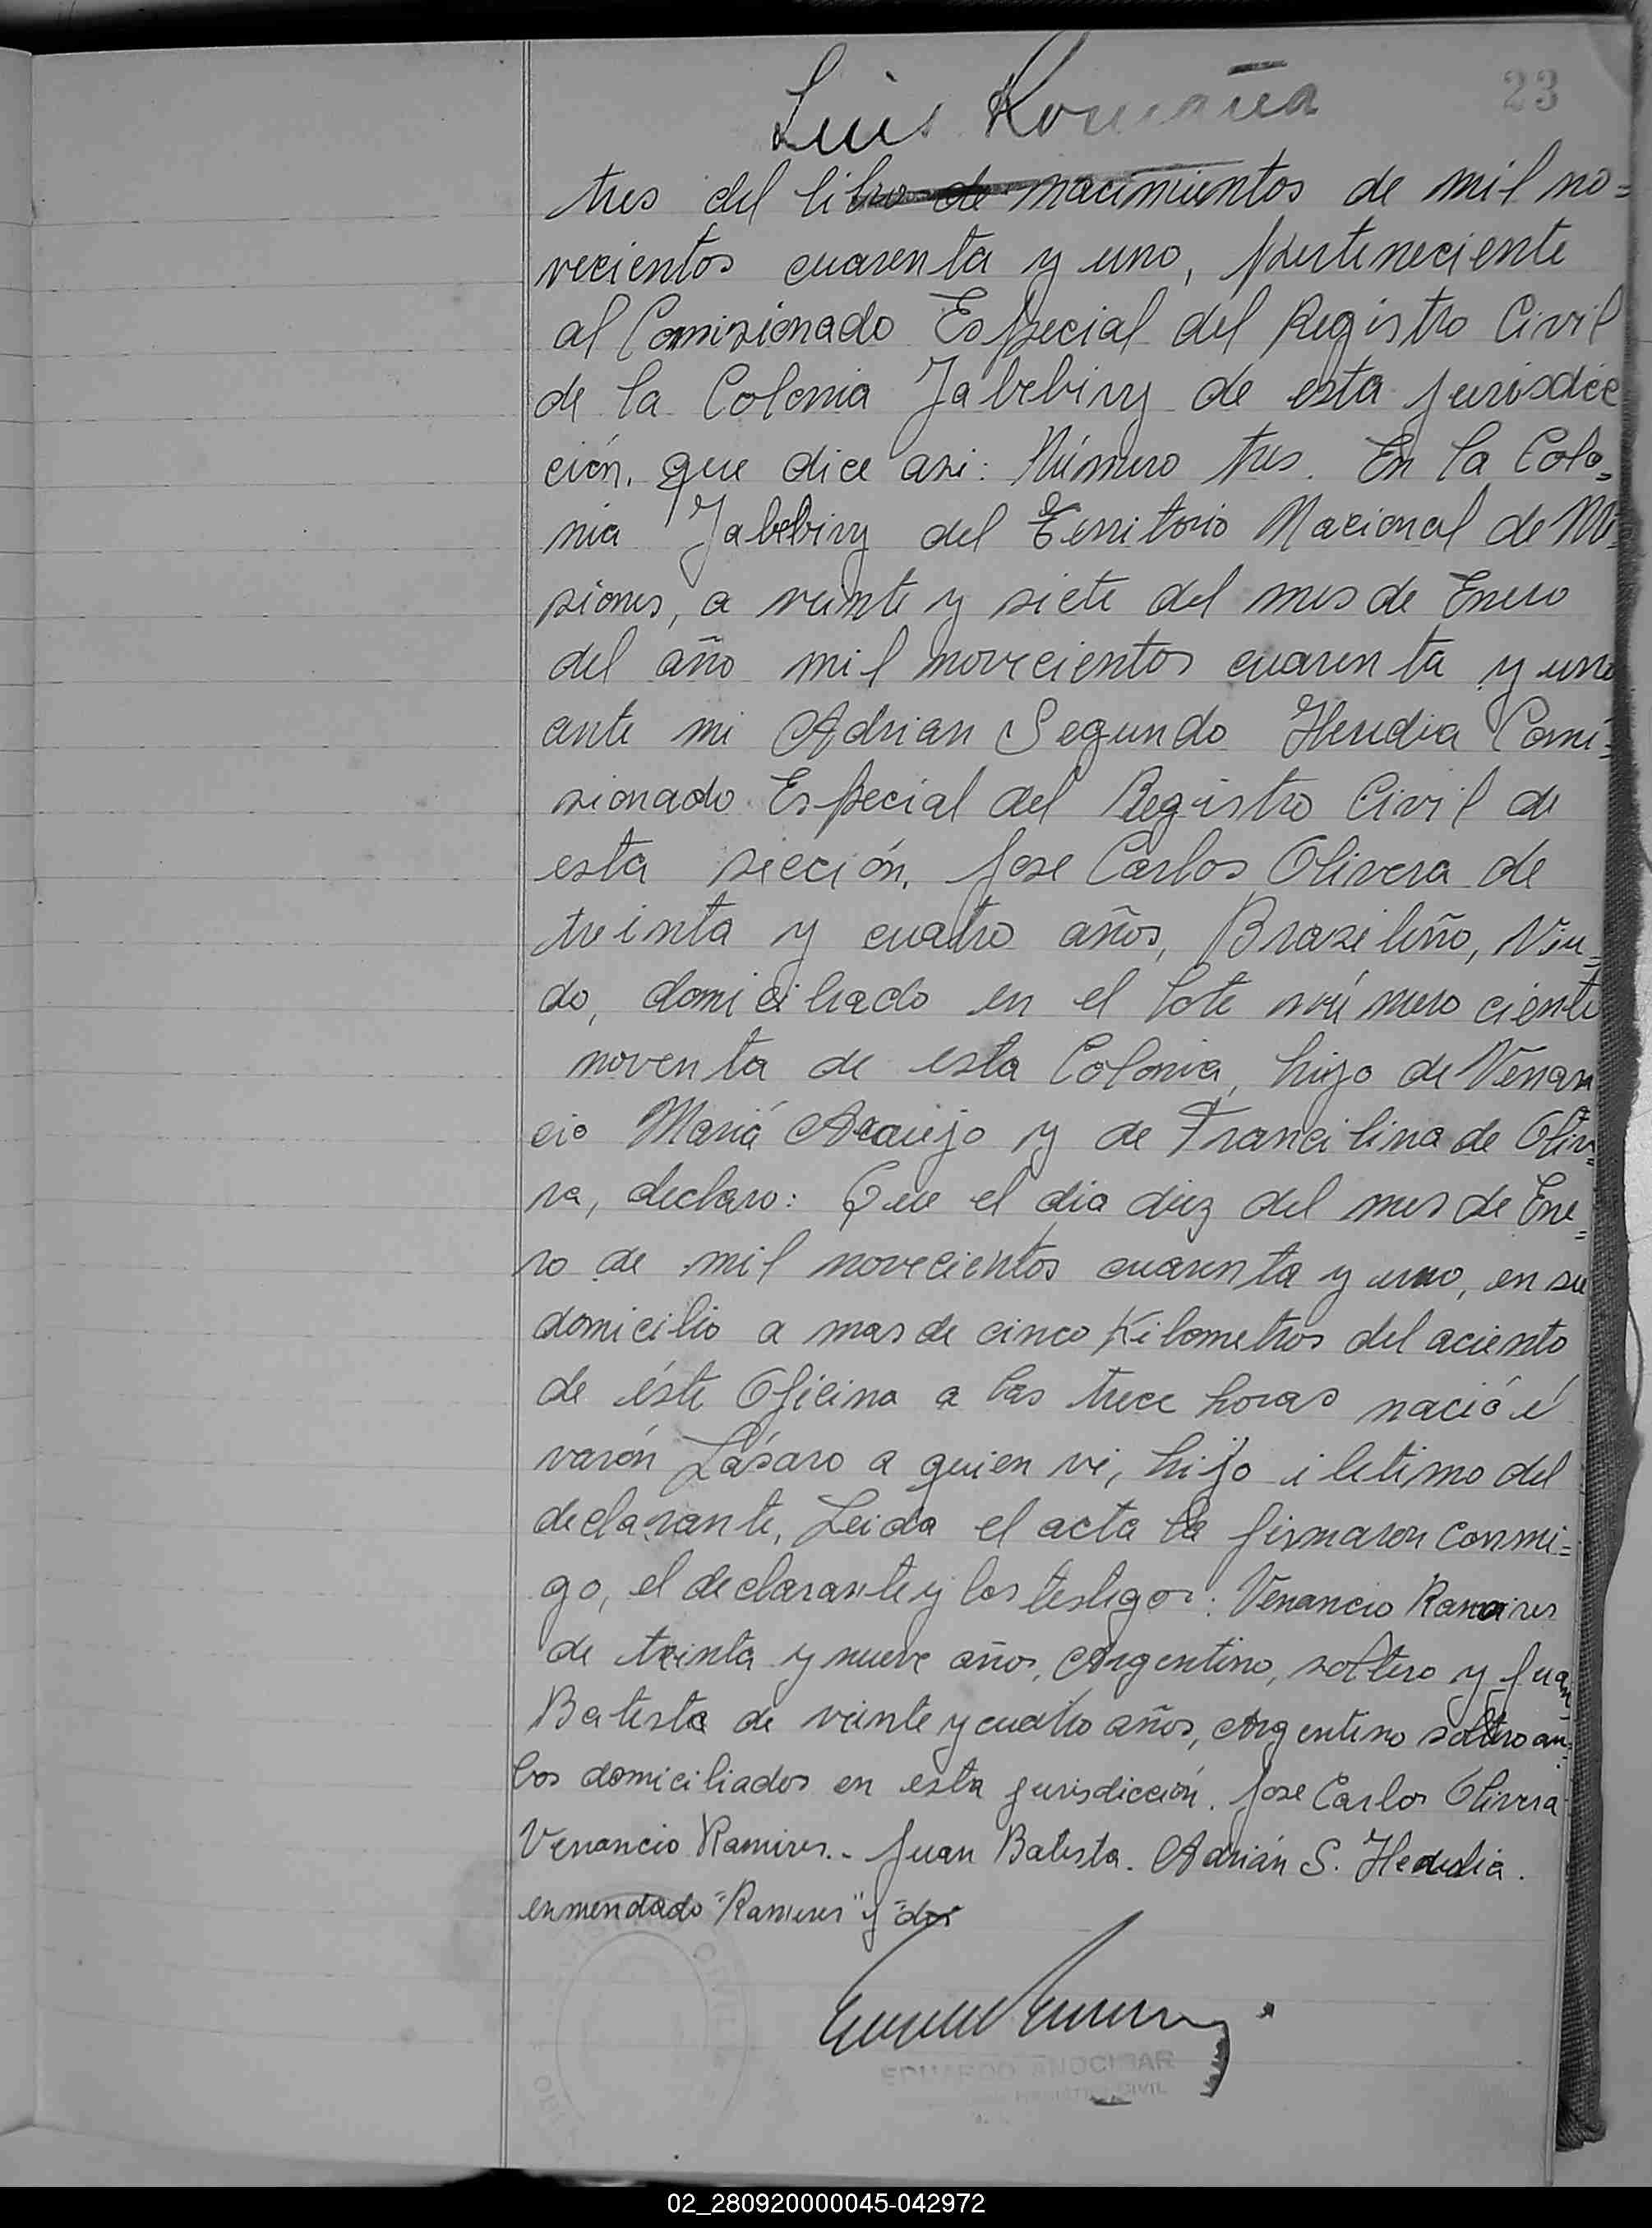 Luis Romaña
23
tres del libro de nacimientos de mil no=
vecientos cuarenta y uno, perteneciente
al Comisionado Especial del Registro Civil
de la Colonia Jabebiry de esta jurisdic
ción, que dice asi: Número tres. En la Colo=
nia Jabebiry del Territorio Nacional de Mi=
siones, a veinte y siete del mes de Enero
del año mil novecientos cuarenta y uno
ante mi Adrian Segundo Heredia Comi=
sionado Especial del Registro Civil de
esta sección, Jose Carlos Olivera de
treinta y cuatro años, Brasileño, Viu=
do, domiciliado en el lote número ciento
noventa de esta Colonia, hijo de Venan
cio Mariá Araujo y de Francilina de Olive=
ra, declaro: Que el dia diez del mes de Ene=
ro de mil novecientos cuarenta y uno, en su
domicilio a mas de cinco Kilometros del aciento
de éste Oficina a las trece horas nació é
varón Lásaro a quien vi, hijo iletimo del
declarante, Leida el acta la firmaron conmi=
go, el declarante y los testigos: Venancio Ramires
de treinta y nueve años, Argentino, soltero y Juan
Batista de veinte y cuatro años, Argentino soltero am=
bos domiciliados en esta jurisdicción. Jose Carlos Olivera
Venancio Ramires.- Juan Batista. Adrián S. Heredia.
enmendado "Ramires" y "dos
EDUARDO ANOCIBAR
CIVIL
02_280920000045-042972